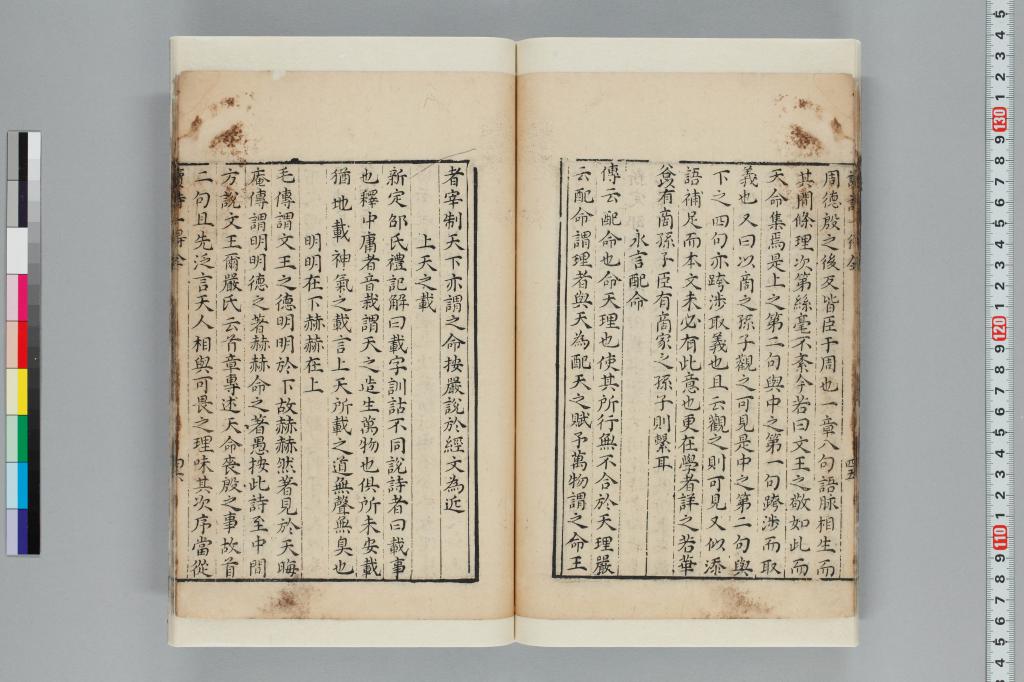 周德殷之後又皆臣于周也一章八句語脈相生而
其間條理次第絲毫不紊今若曰文王之敬如此而
天命集焉是上之第二句與中之第一句跨涉而取
義也又曰以商之孫子觀之可見是中之第二句與
下之四句亦跨涉取義也且云觀之則可見又似添
語補足而本文未必有此意也更在學者詳之若華
谷有商孫子臣有商家之孫子則繫耳
永言配命
傳云配命也命天理也使其所行無不合於天理嚴
云配命謂理者與天為配天之賦予萬物謂之命王
者宰制天下亦謂之命按嚴說於經文為近
上天之載
新定邵氏禮記解曰載字訓詁不同說詩者曰載事
也釋中庸者音栽謂天之造生萬物也俱所未安載
猶地載神氣之載言上天所載之道無聲無臭也
明明在下赫赫在上
毛傳謂文王之德明明於下故赫赫然著見於天晦
庵傳謂明明德之著赫赫命之著愚按此詩至中間
方說文王爾嚴氏云首章專述天命喪殷之事故首
二句且先泛言天人相與可畏之理味其次序當從